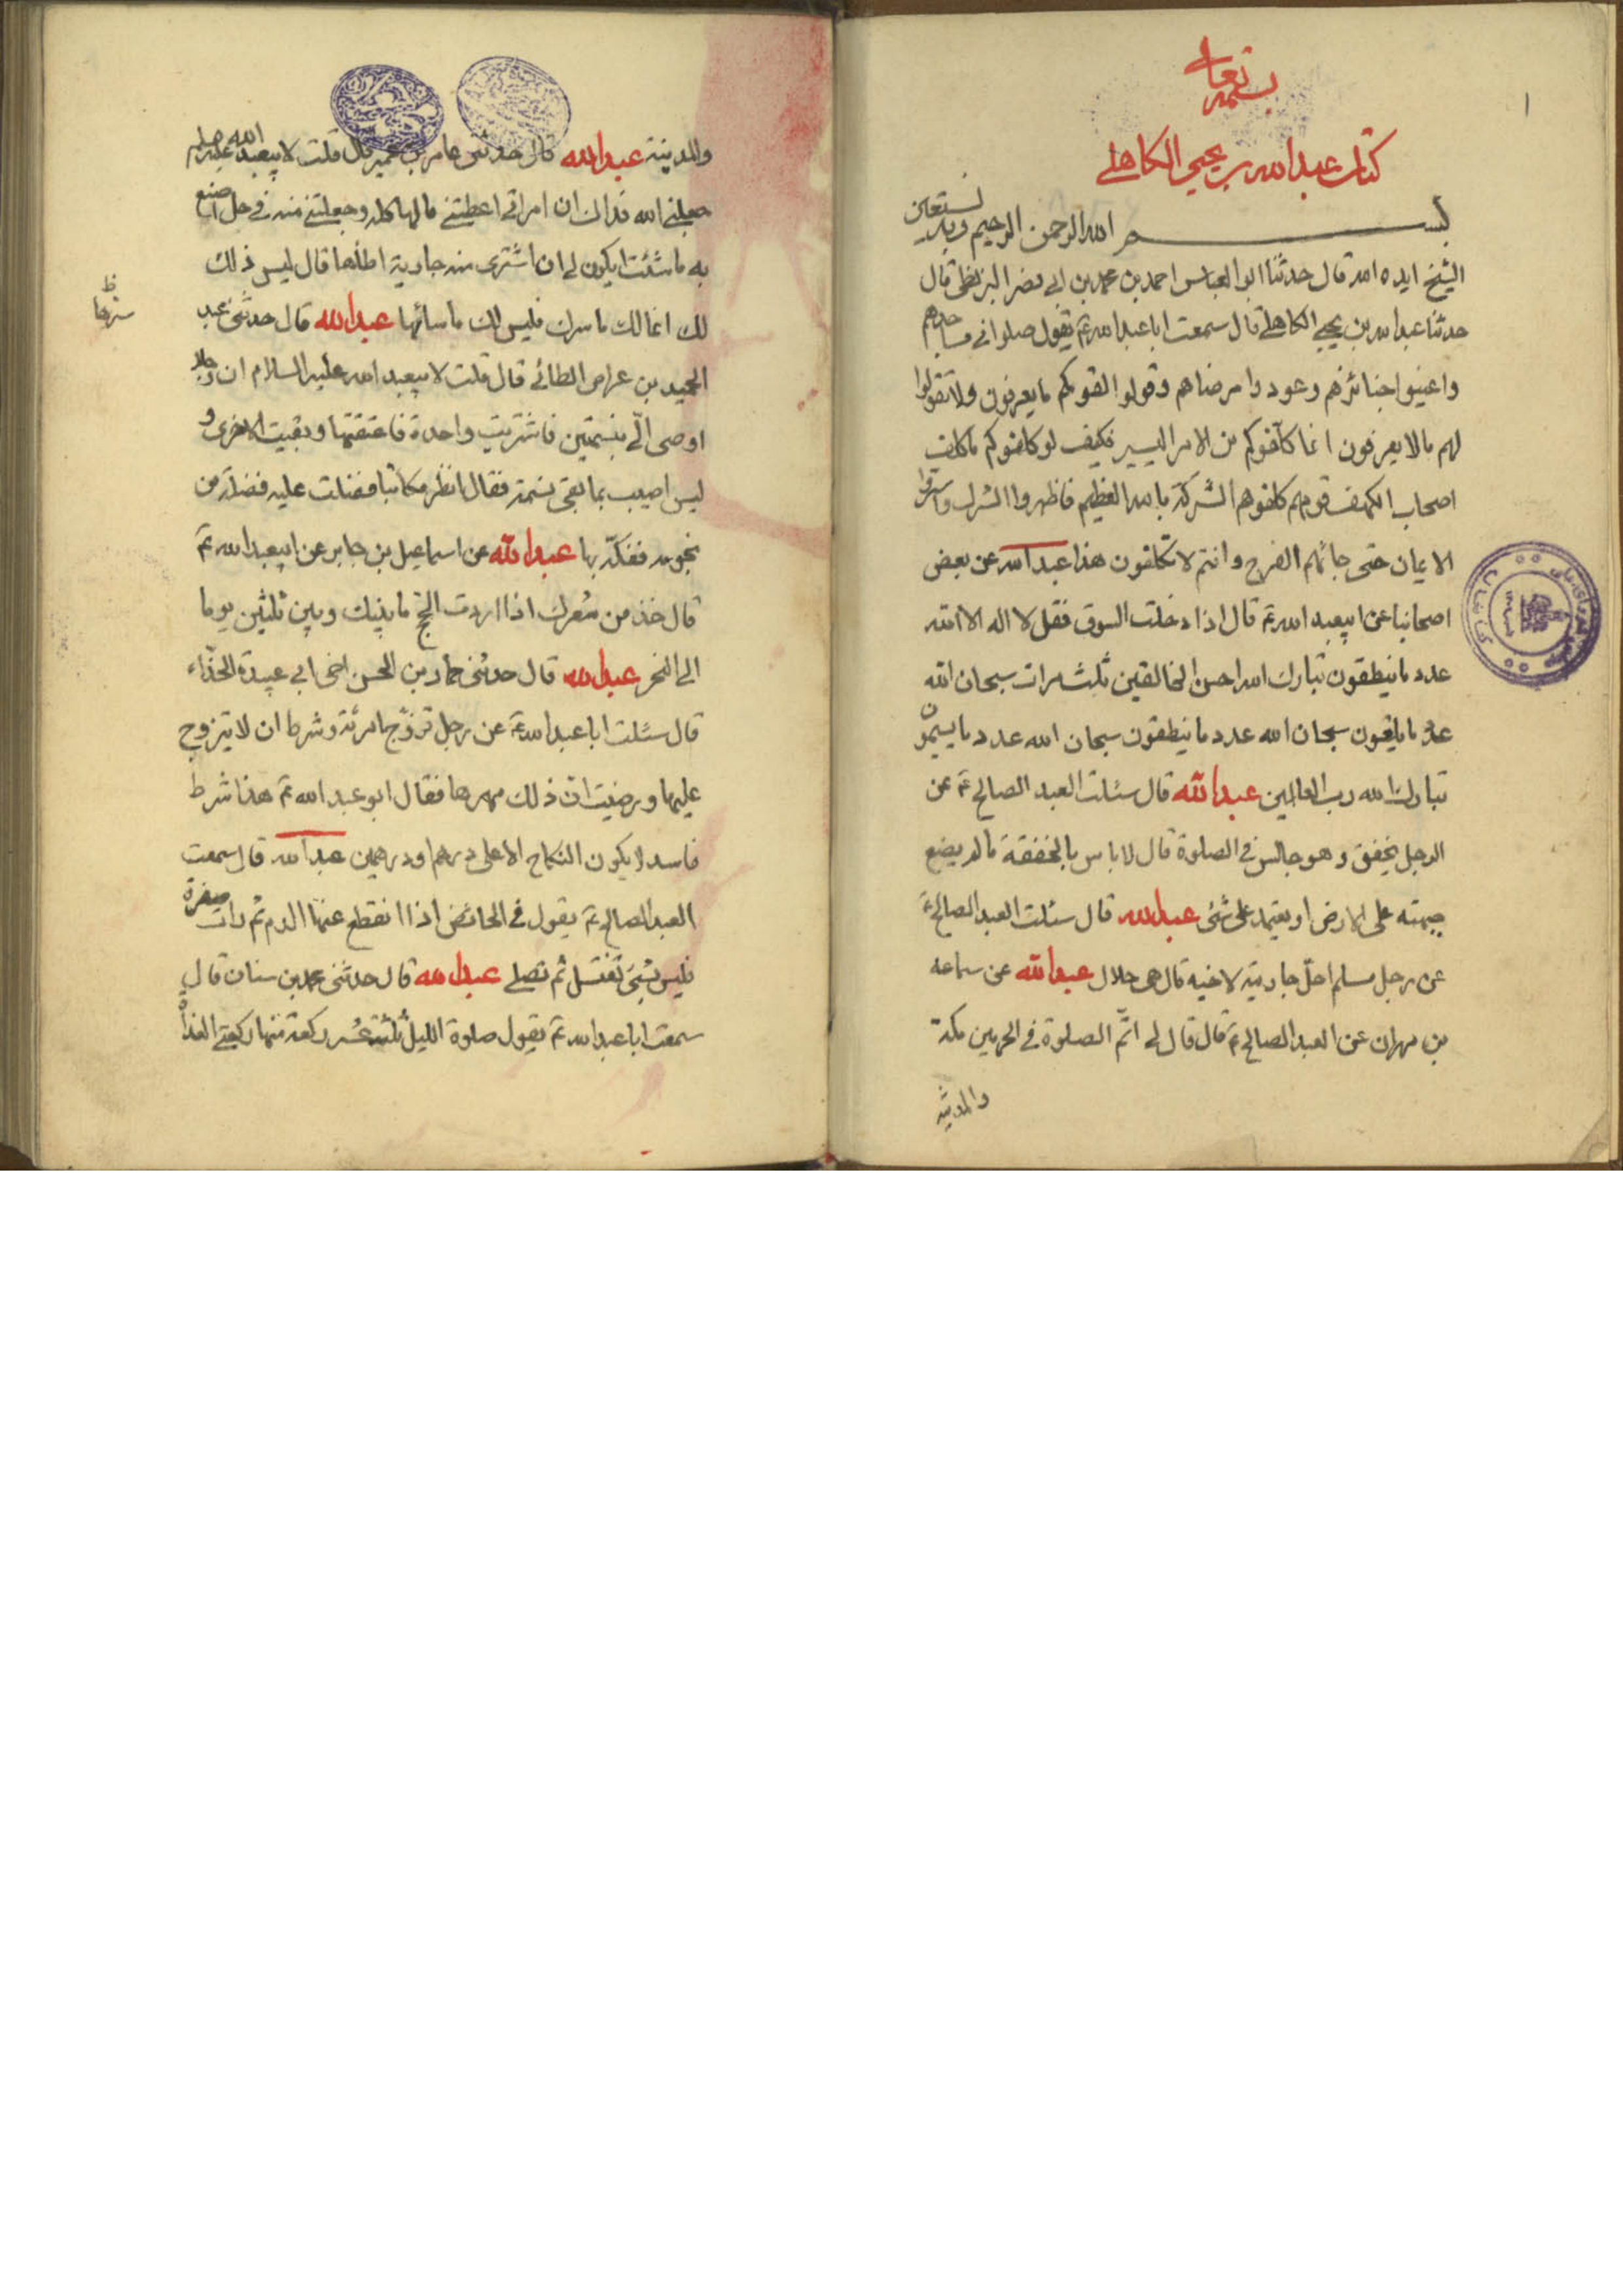 بسمه تعالى
كتاب عبد الله بن يحيى الكاهلي
بسم الله الرحمن الرحيم وبه نستعين
الشيخ ايده الله قال حدثنا ابوالعباس احمد بن محمد بن ابي نصر البزنطي قال
حدثنا عبد الله بن يحيى الكاهلي قال سمعت ابا عبد الله ع يقول صلوا في مساجدهم
واعينوا جنائزهم وعودوا مرضاهم وقولوا لقومكم ما يعرفون ولا تقولوا
لهم ما لا يعرفون انما كلفوكم من الامر اليسير فكيف لو كلفوكم ما كلف
اصحاب الكهف قومهم كلفوهم الشركة بالله العظيم فاظهروا الشرك واسروا
الايمان حتى جائهم الفرج وانتم لا تكلفون هذا عبد الله عن بعض
اصحابنا عن ابيعبد الله ع قال اذا دخلت السوق فقل لا اله الا الله
عدد ما ينطقون تبارك الله احسن الخالقين ثلث مرات سبحان الله
عدد ما يلغون سبحان الله عدد ما ينطقون سبحان الله عدد ما يسمون
تبارك الله رب العالمين عبد الله قال سئلت العبد الصالح ع عن
الرجل يخفق وهو جالس في الصلوة قال لا باس بالخفقة ما لم يضع
جبهته على الارض او يعتمد على شئ عبد الله قال سئلت العبد الصالح ع
عن رجل مسلم احل جاريته لاخيه قال هي حلال عبد الله عن سماعه
بن مهران عن العبد الصالح ع قال قال لي اتم الصلوة في الحرمين مكة
والمدينة
والمدينة عبد الله قال حدثني عامر بن عمير قال قلت لابيعبد الله عليه السلم
جعلني الله فداك ان امراتي اعطتني مالها كله وجعلتني منه في حل اصنع
به ما شئت ايكون لي ان اشتري منه جارية اطأها قال ليس ذلك
لك انما لك ما سرك فليس لك ما سائها عبد الله قال حدثني عبد
الحميد بن عواض الطائي قال قلت لابيعبد الله عليه السلام ان رجلا
اوصى الي بنسمتين فاشتريت واحدة فاعتقتها وبقيت الاخرى و
ليس اصيب بما بقى نسمة فقال انظر مكاتبا فضلت عليه فضلة من
نجومه ففكه بها عبد الله عن اسماعيل بن جابر عن ابيعبد الله ع
قال خذ من شعرك اذا اردت الحج ما بينك وبين ثلثين يوما
الى النحر عبد الله قال حدثني حماد بن الحسن اخى ابي عبيدة الحذاء
قال سئلت ابا عبد الله ع عن رجل تزوج امرئة وشرط ان لا يتزوج
عليها ورضيت ان ذلك مهرها فقال ابو عبد الله ع هذا شرط
فاسد لا يكون النكاح الا على درهم او درهمين عبد الله قال سمعت
العبد الصالح ع يقول في الحائض اذا انقطع عنها الدم ثم رات صفرة
فليس بشئ تغتسل ثم تصلي عبد الله قال حدثني محمد بن سنان قال
سمعت ابا عبد الله ع يقول صلوة الليل ثلثة عشر ركعة منها ركعتي الغداة